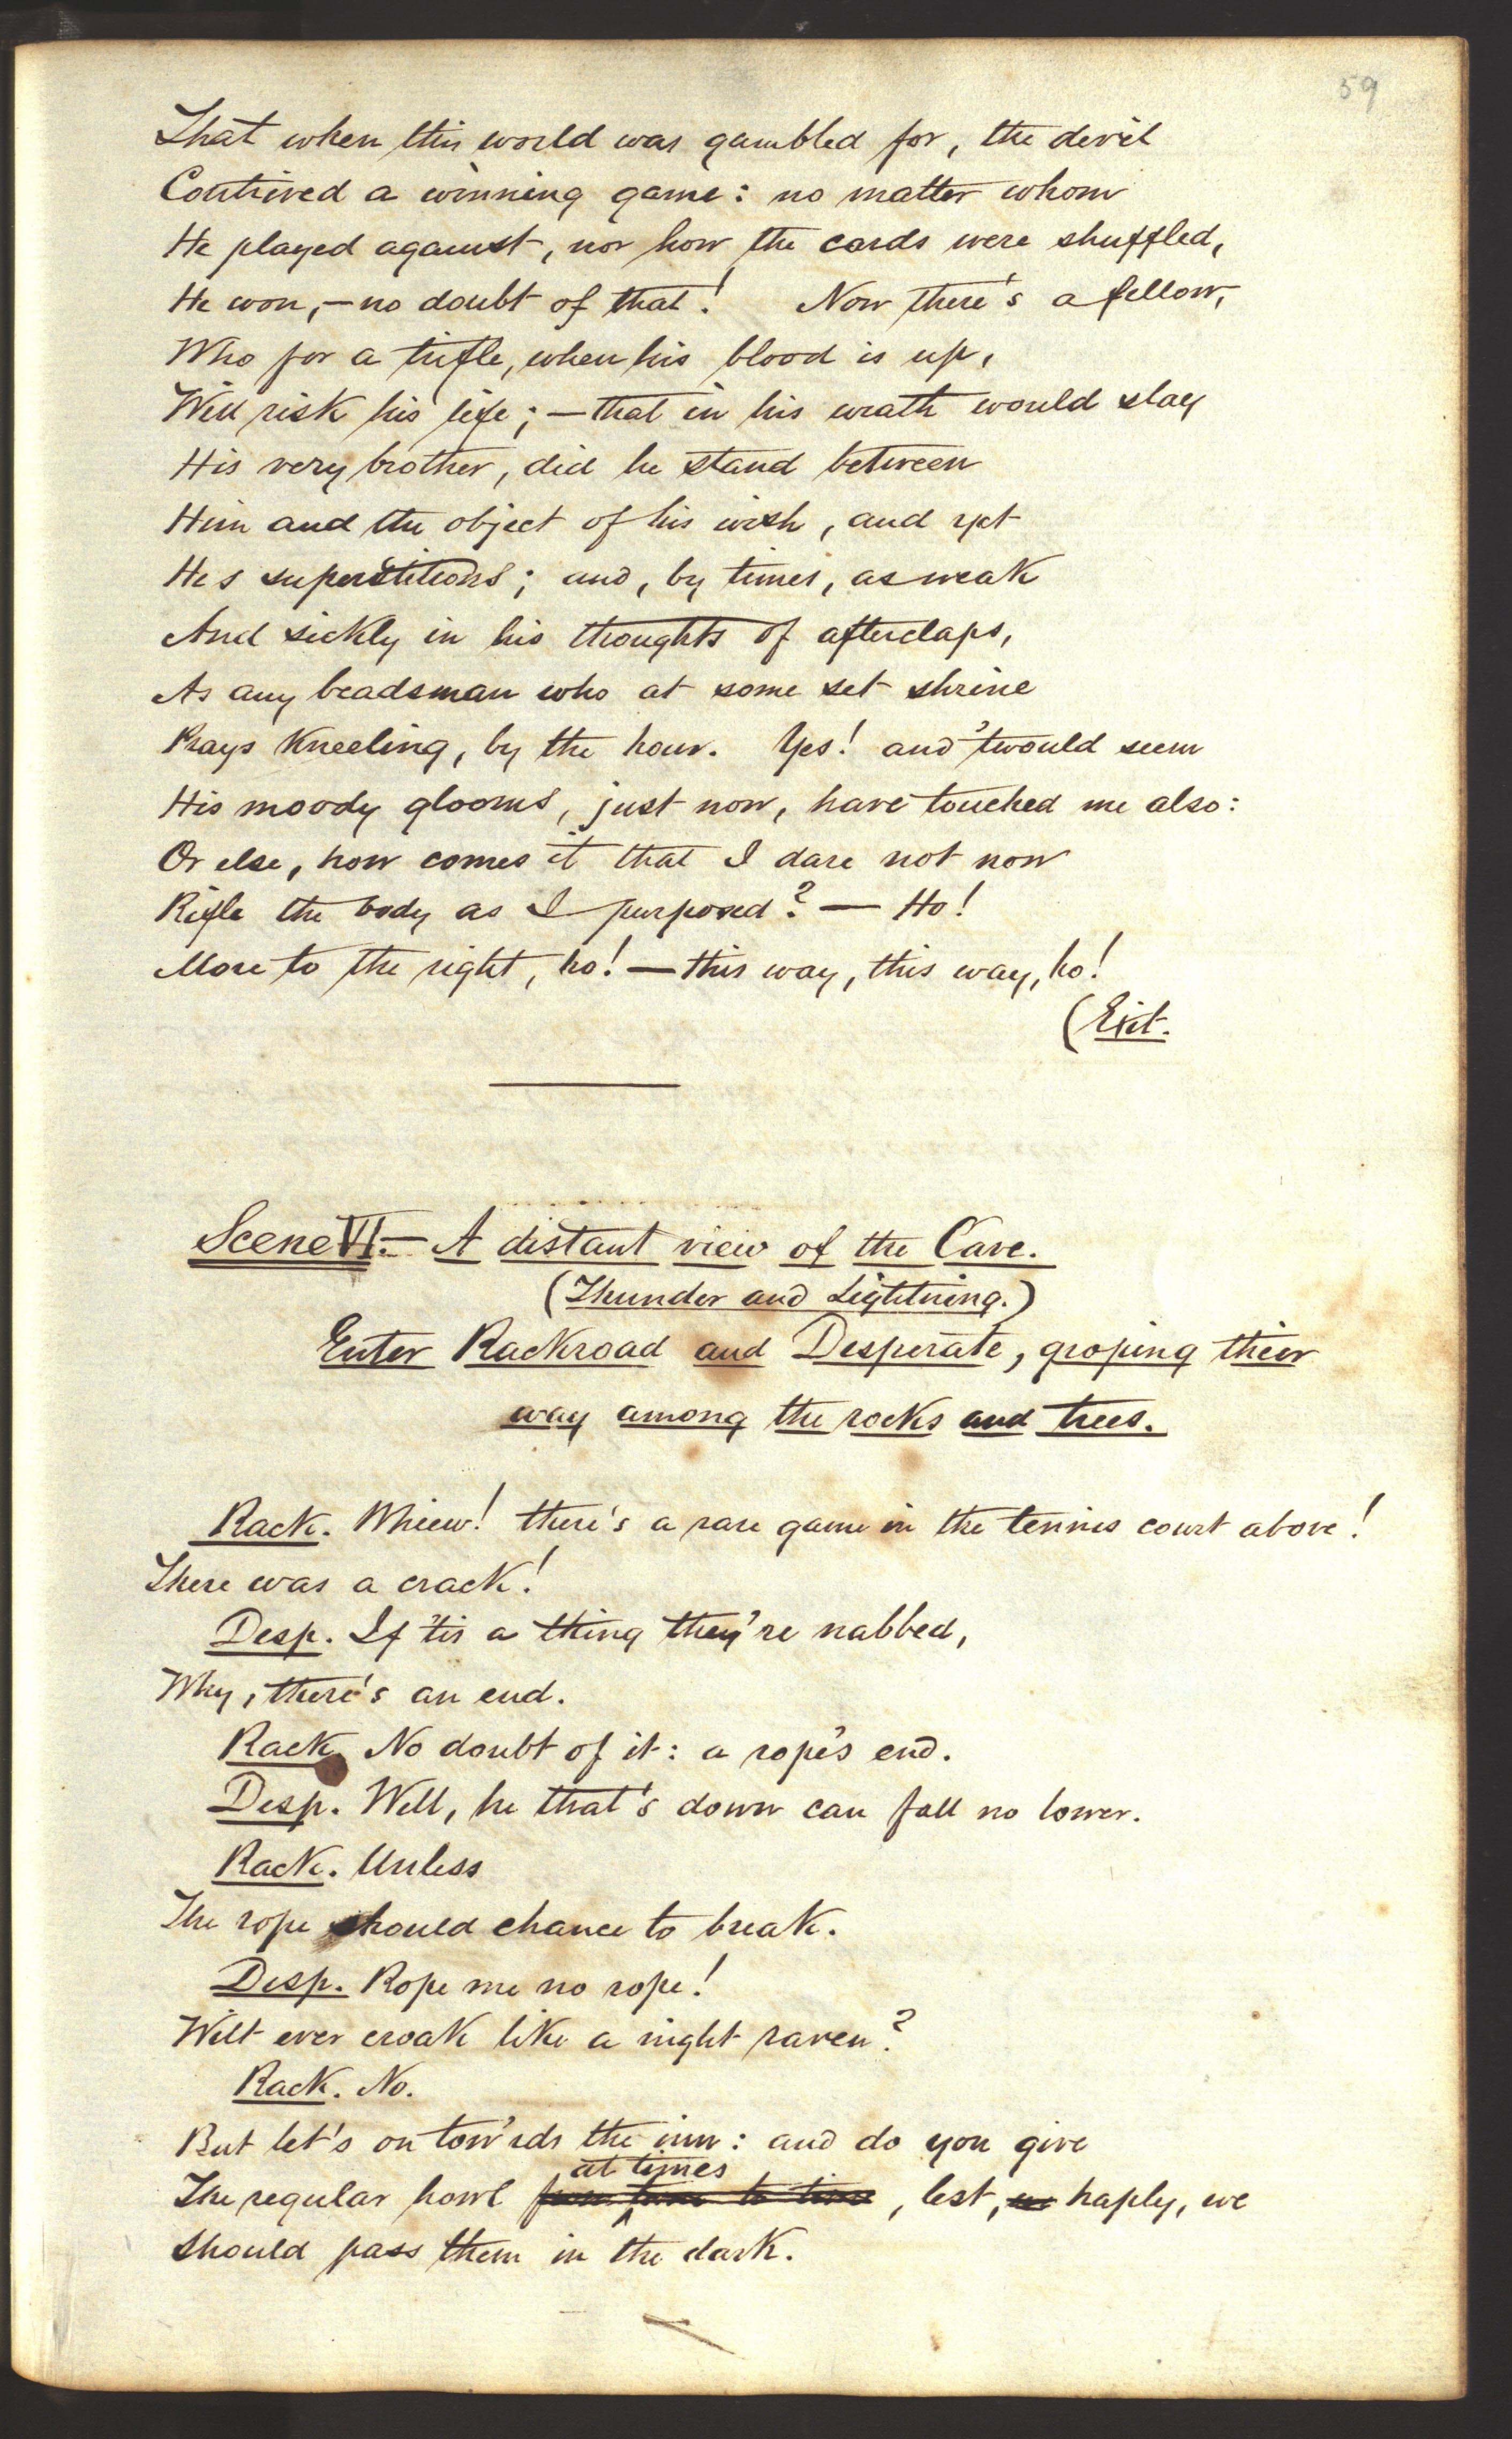 59
That when this world was gambled for, the devil
Contrived a winning game: no matter whom
He played against, nor how the cards were shuffled,
He won,—no doubt of that! Now there's a fellow,
Who for a trifle, when his blood is up,
Will risk his life;—that in his wrath would slay
His very brother, did he stand between
Him and the object of his wish, and yet
He s superstitious; and, by times, as weak
And sickly in his thoughts of afterclaps,
As any beadsman who at some set shrine
Prays kneeling, by the hour. Yes! and 'twould seem
His moody glooms, just now, have touched me also:
Or else, how comes it that I dare not now
Rifle the body as I purposed?— Ho!
More to the right, ho!—this way, this way, ho!
(Exit.
Scene VI.— A distant view of the Cave.
(Thunder and Lightning.)
Enter Rackroad and Desperate, groping their
way among the rocks and trees.
Rack. Whiew! there's a rare game in the tennis court above!
There was a crack!
Desp. If 'tis a thing they're nabbed,
Why, there's an end.
Rack. No doubt of it: a rope's end.
Desp. Well, he that's down can fall no lower.
Rack. Unless
The rope should chance to break.
Desp. Rope me no rope!
Wilt ever croak like a night raven?
Rack. No.
But let's on tow'rds the inn: and do you give
at times
The regular howl from time to time, lest, we haply, we
Should pass them in the dark.